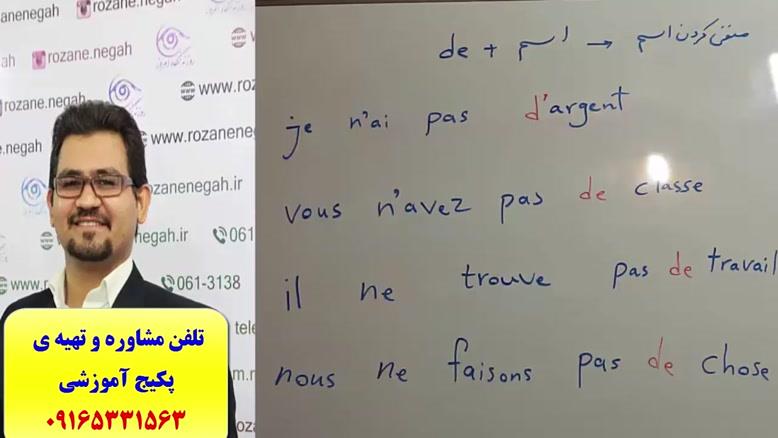 negah
rozane.negah
www.
rozane.negah
www.rozanenegah
.negah
zanenegah.ir
negah.ir
061
www.
061-3138
تلفن مشاوره و تهیه ی
پکیج آموزشی
۰۹۱۶۵۳۳۱۵۶۳
de + اسم → منفی کردن اسم
je n'ai pas d'argent
vous n'avez pas de classe
il ne trouve pas de travail
nous ne faisons pas de chose